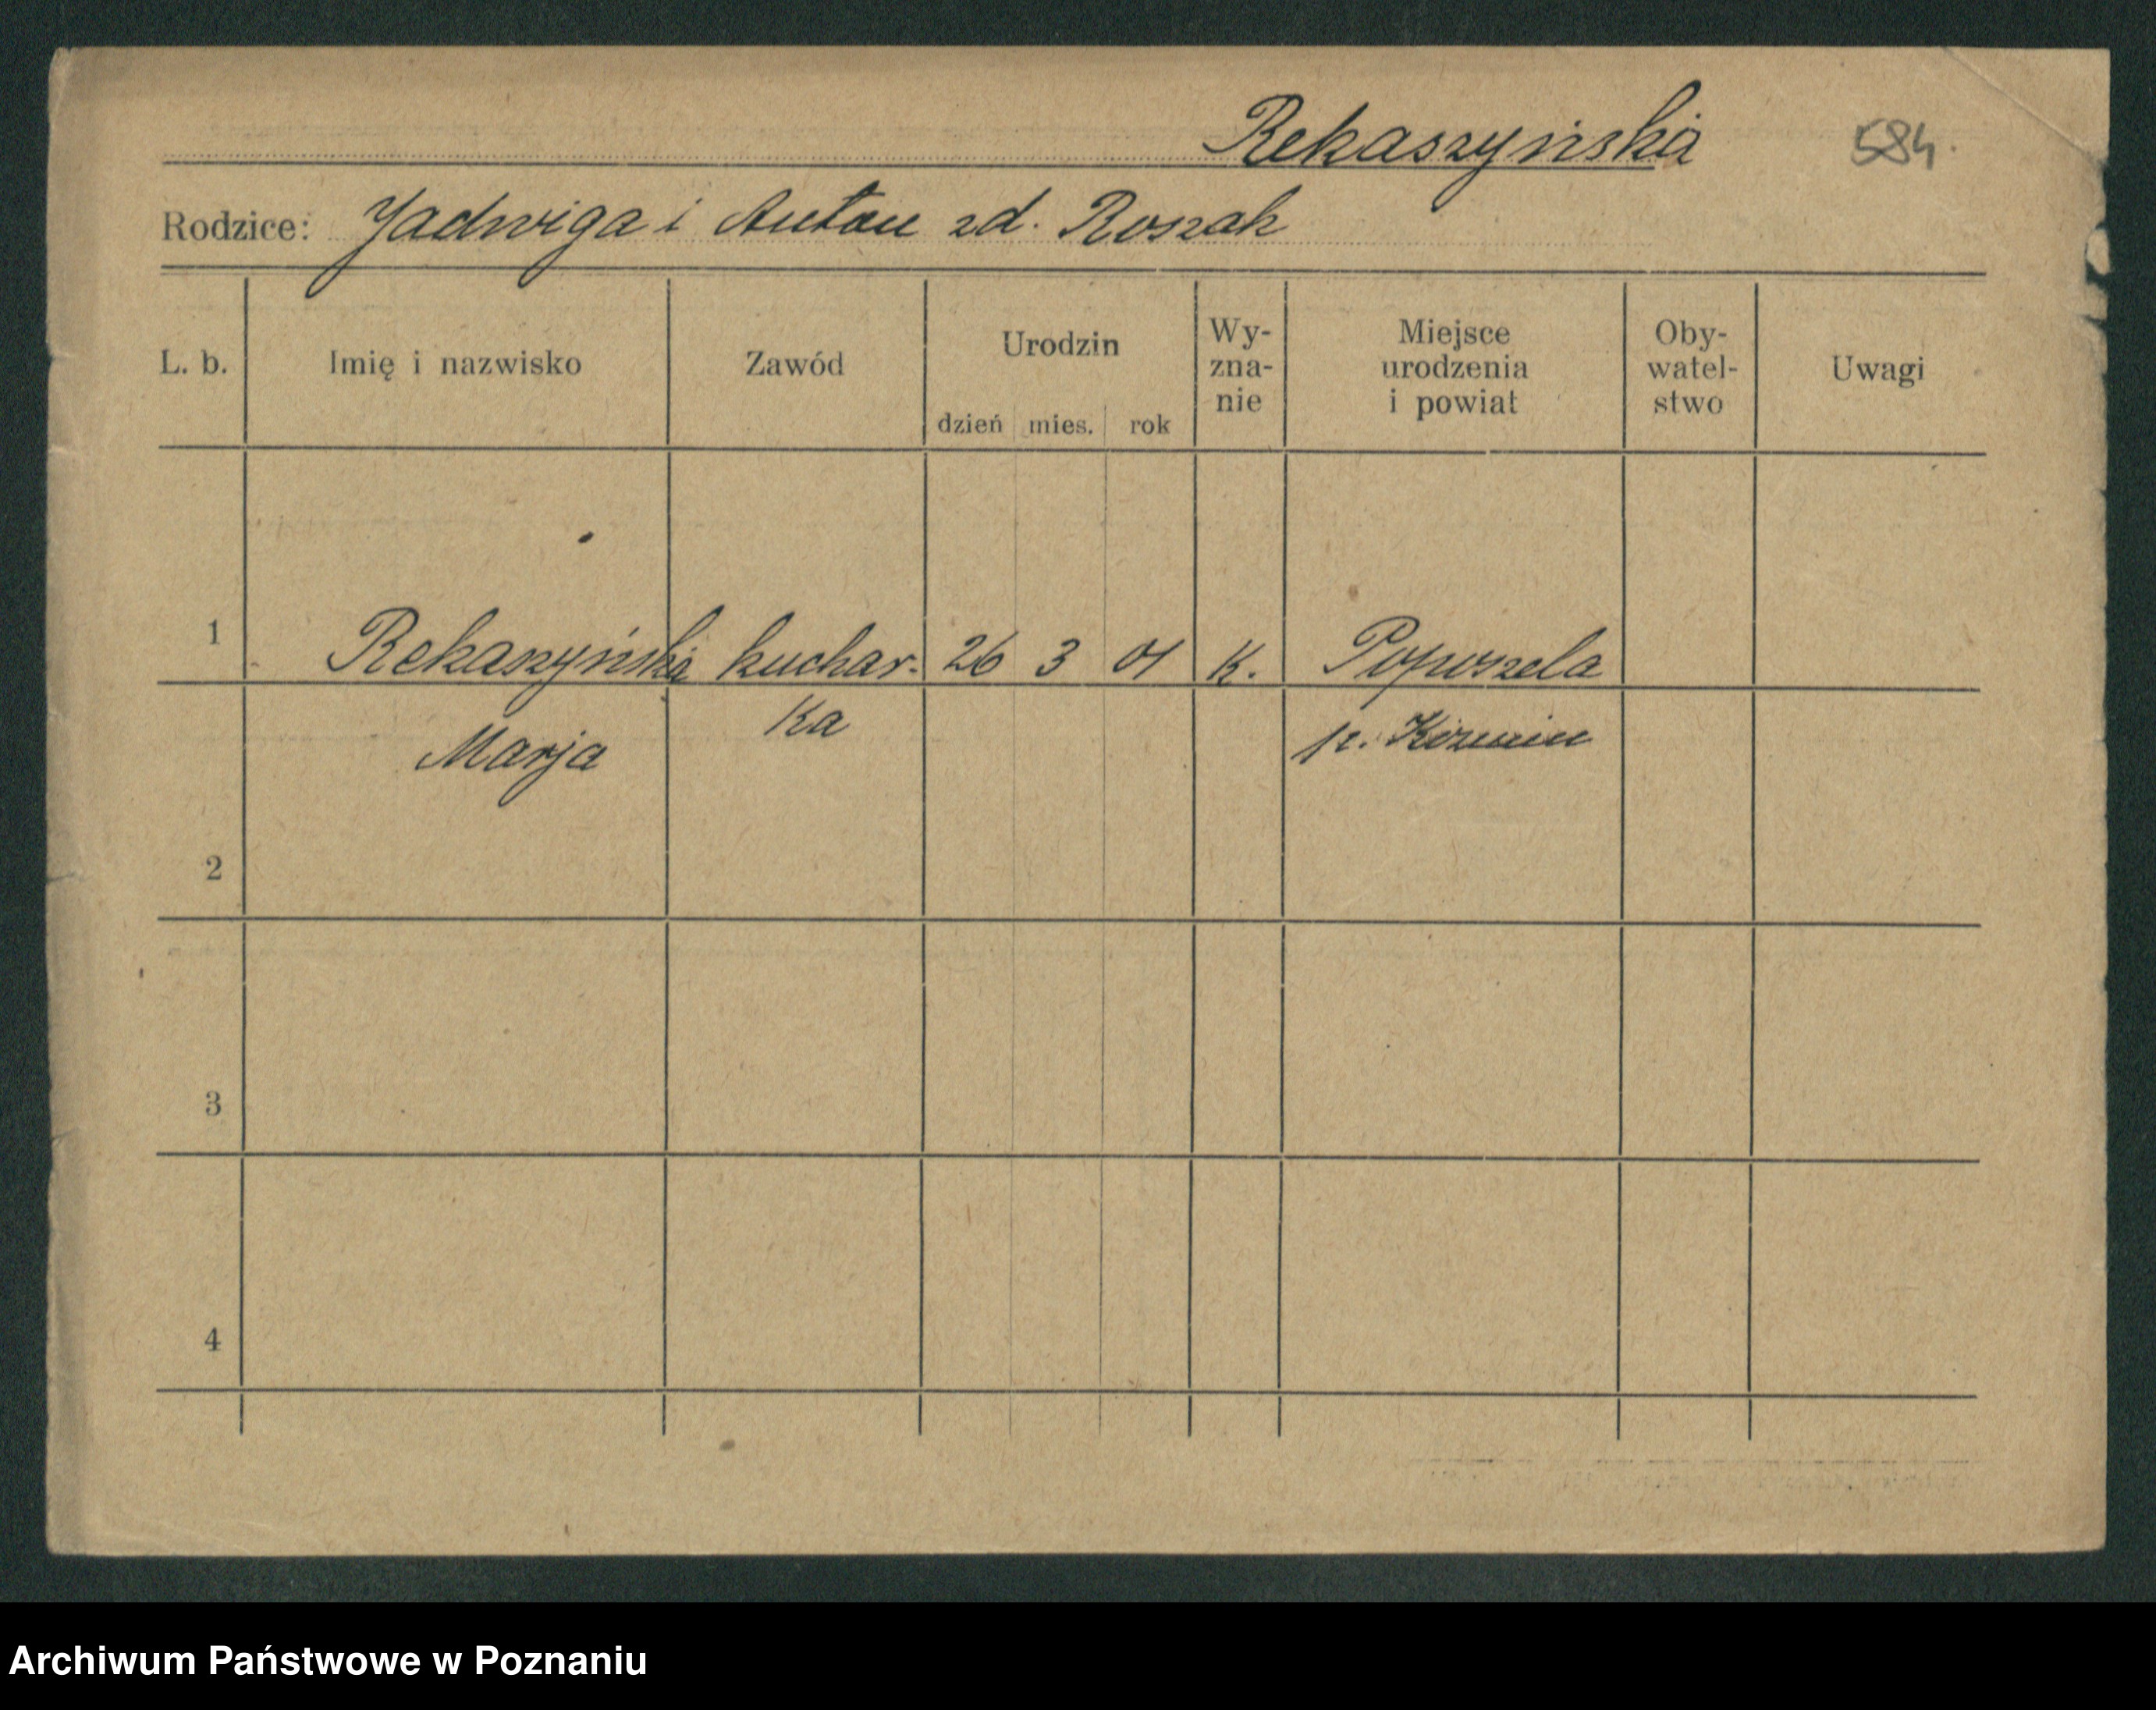 Rekaszyńska
584.
Rodzice: Jadwiga i Anton zd. Roszak
L. b.
Imię i nazwisko
Zawód
Urodzin
dzień mies. rok
Wy-
zna-
nie
Miejsce
urodzenia
i powiat
Oby-
watel-
stwo
Uwagi
1 Rekaszyńska kuchar- 26 3 01 K. Poposzela
Marja ka p. Koźmin
2
3
4
Archiwum Państwowe w Poznaniu